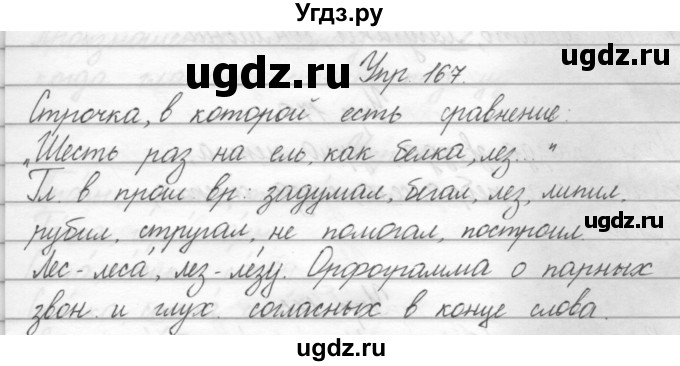 Угдз.ру
ugdz.ru
Упр. 167.
Строчка, в которой есть сравнение:
„Шесть раз на ель, как белка, лез..."
Гл. в прош. вр.: задумал, бегал, лез, липил,
рубил, стругал, не помогал, построил.
Лес - леса́, лез - ле́зу. Орфограмма о парных
звон. и глух. согласных в конце слова.
ugdz.ru
ugdz.ru
ugdz.ru
ugdz.ru